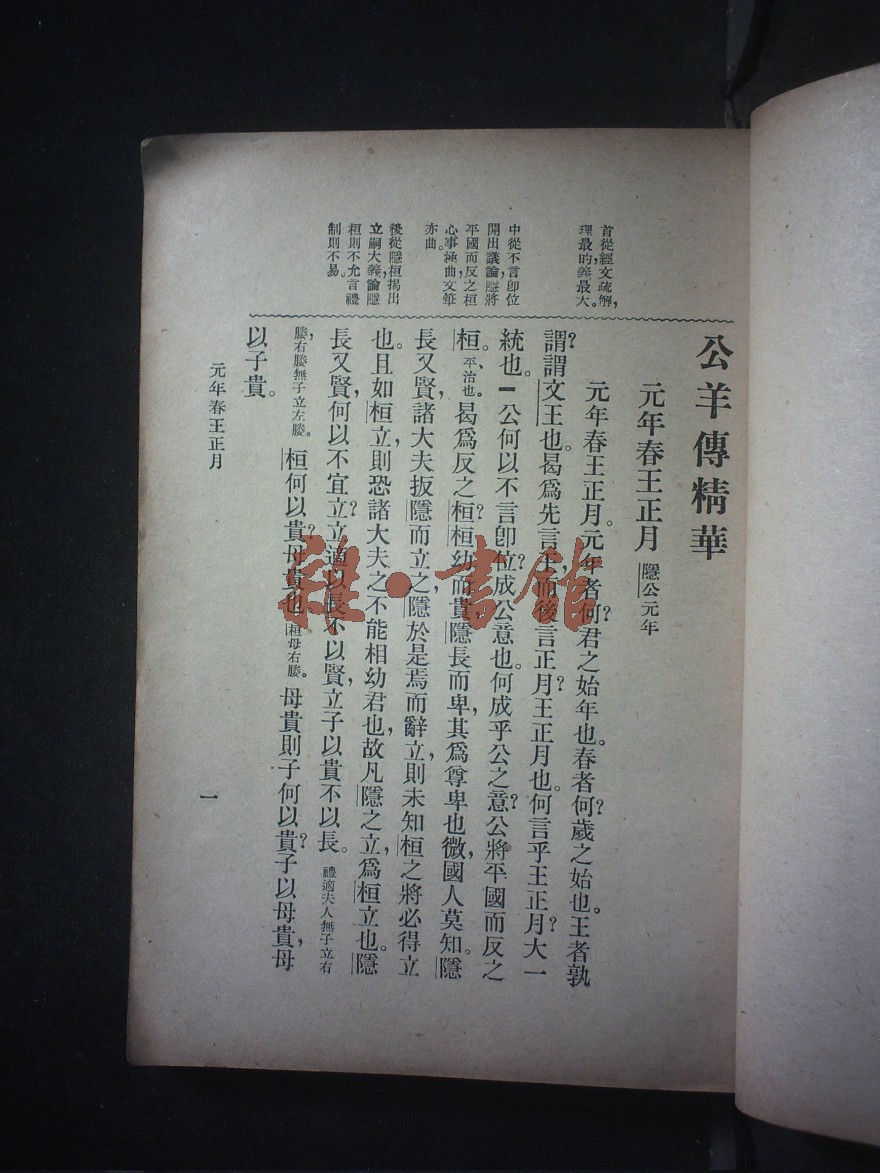 公羊傳精華
元年春王正月 隱公元年
元年春王正月。元年者何？君之始年也。春者何？歲之始也。王者孰
謂？謂文王也。曷爲先言王，而後言正月？王正月也。何言乎王正月？大一
統也。一公何以不言卽位？成公意也。何成乎公之意？公將平國而反之
桓。平、治也。曷爲反之桓？桓幼而貴，隱長而卑，其爲尊卑也微，國人莫知。隱
長又賢，諸大夫扳隱而立之，隱於是焉而辭立，則未知桓之將必得立
也。且如桓立，則恐諸大夫之不能相幼君也，故凡隱之立，爲桓立也。隱
長又賢，何以不宜立？立適以長不以賢，立子以貴不以長。禮適夫人無子立右
媵，右媵無子立左媵。桓何以貴？母貴也。桓母右媵。母貴則子何以貴？子以母貴，母
以子貴。
首從經文疏解，
理最的，義最大。
中從不言卽位
開出議論，隱將
平國而反之桓
心事極曲，文筆
亦曲。
後從隱桓揭出
立嗣大義，論隱
桓則不允，言禮
制則不易。
元年春王正月
一
雜·書館